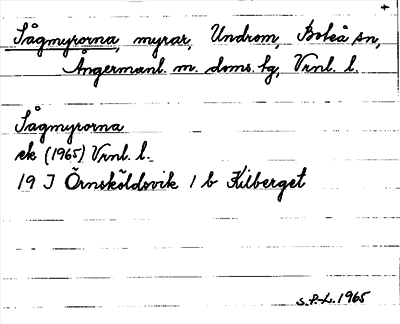 Sågmyrorna, myrar, Undrom, Boteå sn,
Ångermanl. m. doms. tg, Vrnl. l.
Sågmyrorna
ek (1965) Vrnl. l.
19 J Örnsköldsvik 1 b Kilberget
S.P-L. 1965